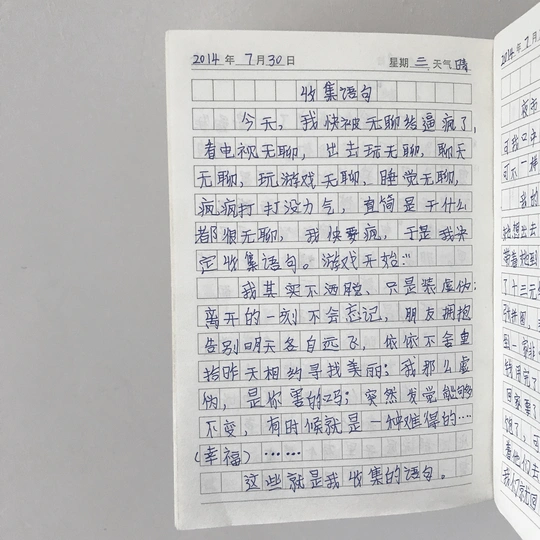 2014 年 7 月 30 日 星期 三 天气 晴
收集语句
今天，我快被无聊给逼疯了，
看电视无聊，出去玩无聊，聊天
无聊，玩游戏无聊，睡觉无聊，
疯疯打打没力气，直简是干什么
都很无聊，我快要疯，于是我决
定收集语句。游戏开始：
我其实不洒脱，只是装虚伪；
离开的一刻不会忘记，朋友拥抱
告别明天各自远飞，依依不舍重
拾昨天相约寻找美丽；我那么虚
伪，是你害的吗；突然发觉能够
不变，有时候就是一种难得的……
（幸福）……
这些就是我收集的语句。
2014 年 7 月
夜市
我的
想出去
带着她到
了十三元
到一家
钱用完了
回家
看他们去
我们就回